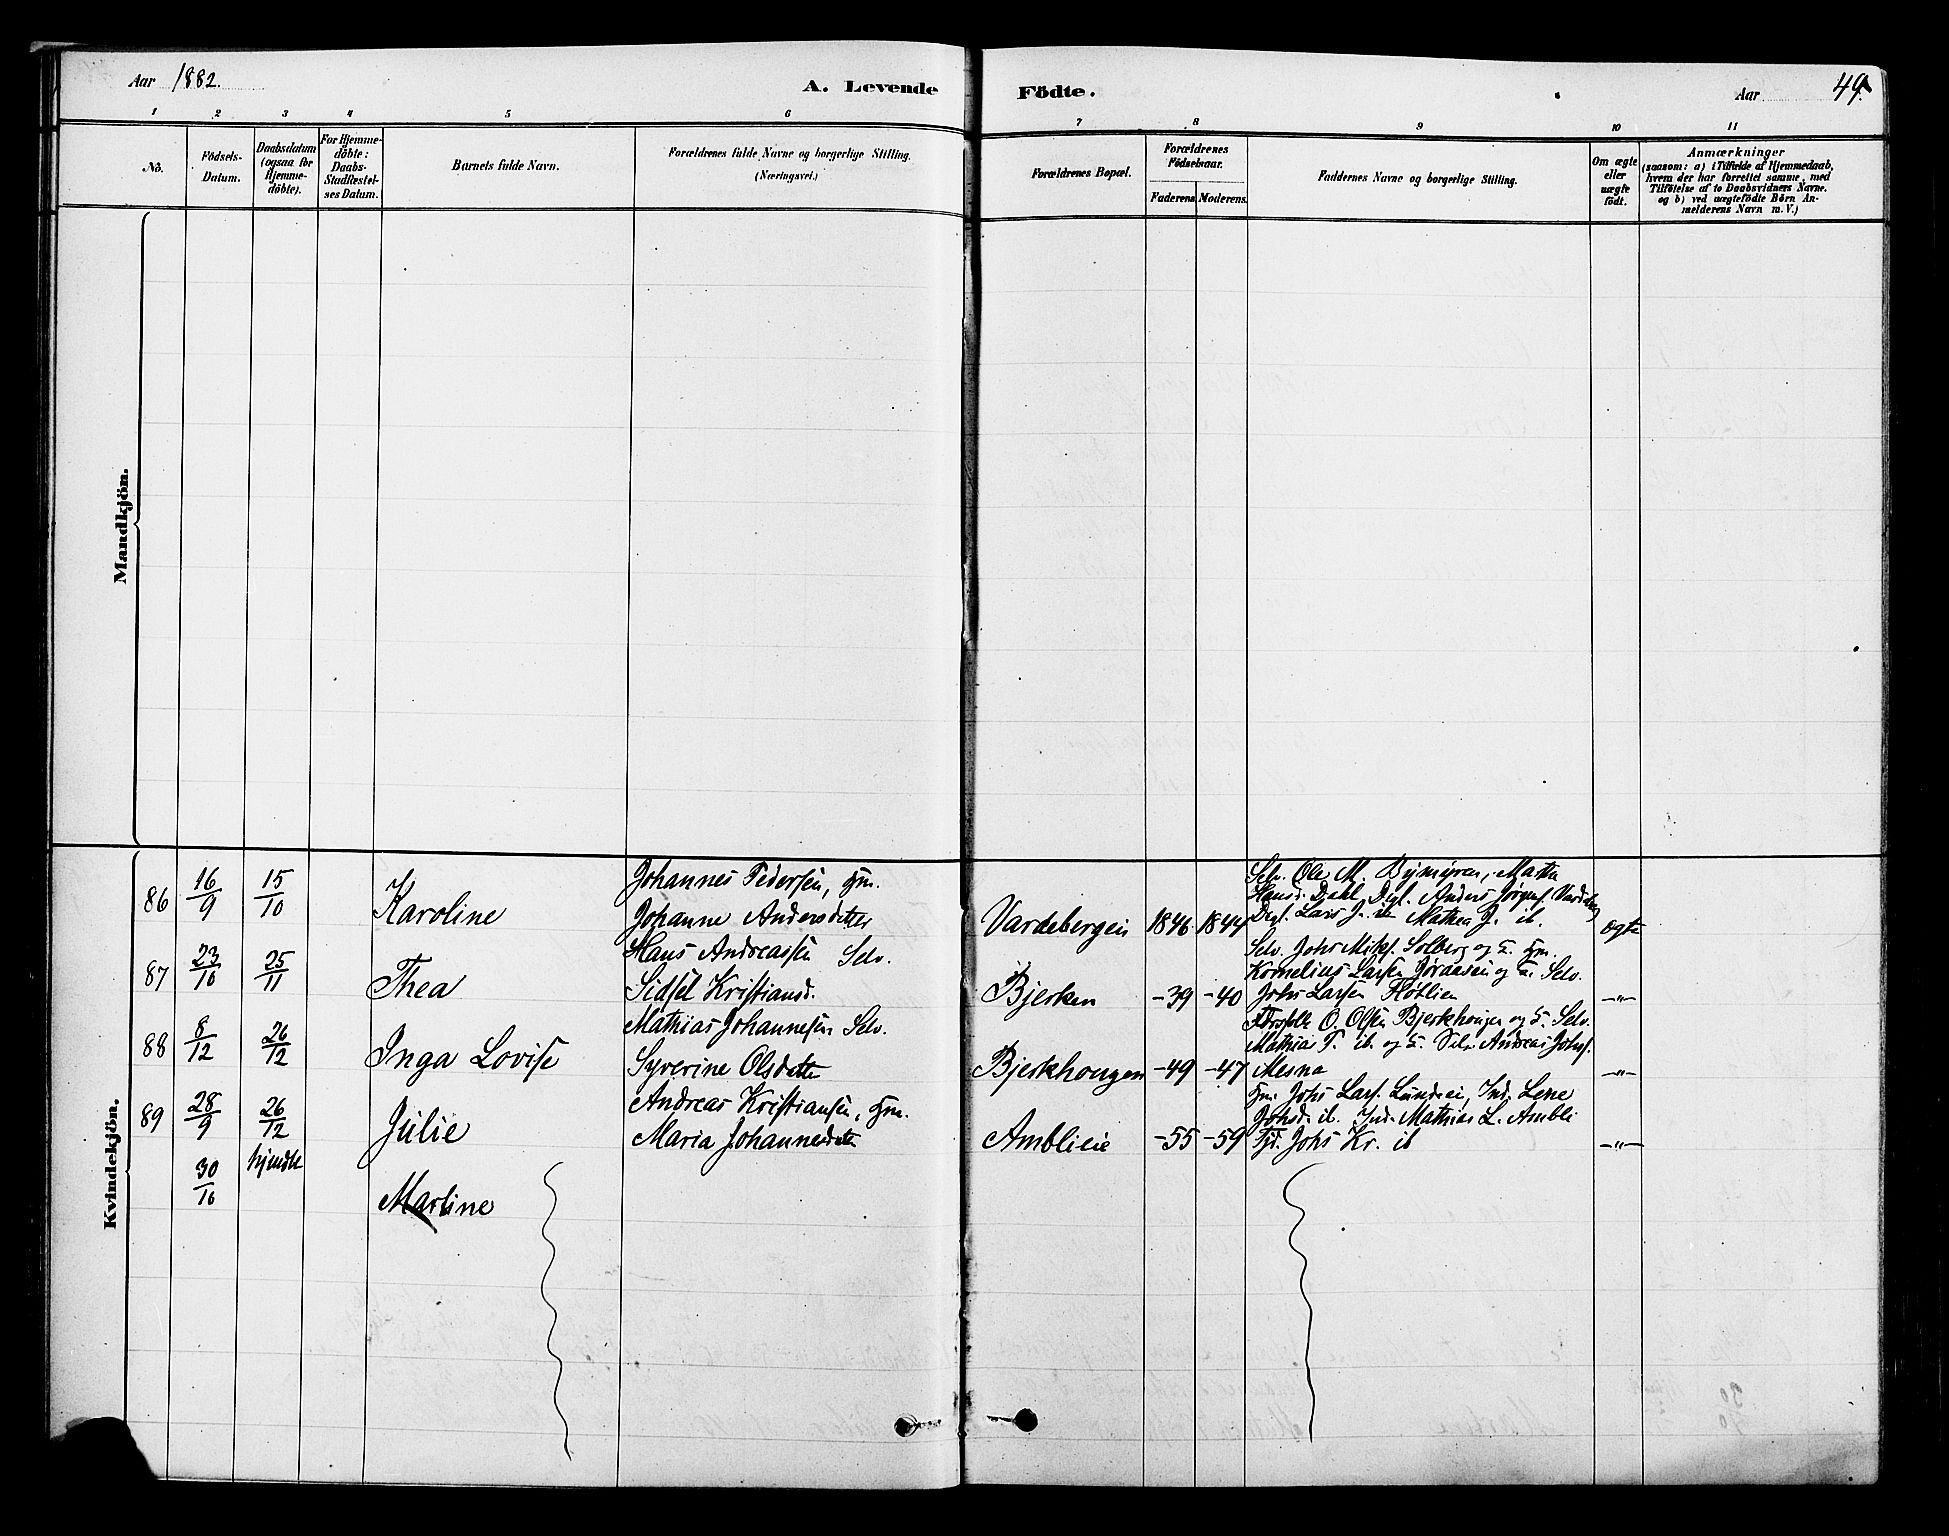 Aar 1882.
A. Levende Födte.
Aar
49.
1 2 3 4 5 6 7 8 9 10 11
No.
Födsels-
Datum.
Daabsdatum
(ogsaa for
Hjemme-
döbte).
For Hjemme-
döbte:
Daabs-
Stadfæstel-
ses Datum.
Barnets fulde Navn.
Forældrenes fulde Navne og borgerlige Stilling.
(Næringsvei.)
Forældrenes Bopæl.
Forældrenes
Födselsaar.
Faderens. Moderens.
Faddernes Navne og borgerlige Stilling.
Om ægte
eller
uægte
födt.
Anmærkninger
(saasom: a) i Tilfælde af Hjemmedaab,
hvem der har forrettet samme, med
Tilföielse af to Daabsvidners Navne.
og b) ved uægtefödte Börn An-
melderens Navn m. V.)
Mandkjön.
Kvindekjön.
86 16/9 15/10 Karoline
Johannes Pedersen, hm.
Johanne Andersdatter
Vardebergeie 1846 1844
Selv. Ole M. Bymyren, Mathea
Hansd. Dahl, Pigl. Anders Jørgens. Vardeberg
Lars J. ib Mathea J. ib.
ægte
87 23/10 25/11 Thea
Hans Andreassen Selv.
Sidsel Kristiansd.
Bjerken -39 -40
Selv. Johs Mikes. Solberg og h. hm.
Kornelius Larsen Jøraasen og h. Selv.
Johs Larsen Fløtlien
-"-
88 8/12 26/12 Inga Lovise
Mathias Johannesen Selv.
Syverine Olsdatter
Bjerkhougen -49 -47
O. Olsen Bjerkhougen og h. Selv.
Mathias T. ib. og h. Selv Andreas Johs.
Mesna
-"-
89 28/9 26/12 Julie
Andreas Kristiansen, hm.
Maria Johannesdatter
Amblieie -55 -59
hm. Johs Lars. Lundeie, Ind. Lene
Johsd. ib. Ind. Mathias L. Ambli
Johs Kr. ib
-"-
30/10 hjmdbt Marline